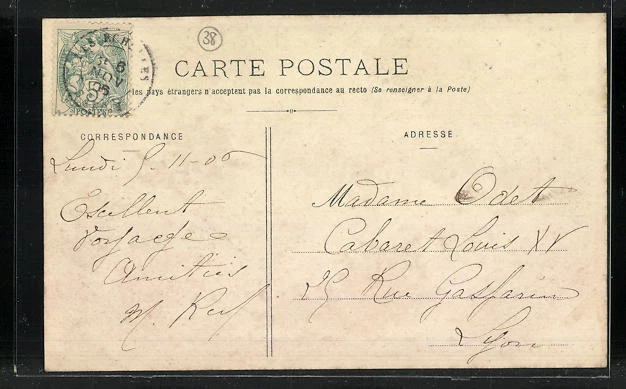 38
CARTE POSTALE
les pays étrangers n'acceptent pas la correspondance au recto (Se renseigner à la Poste)
CORRESPONDANCE
ADRESSE
Lundi 5-11-06
Excellent
voyage
Amitiés
Madame Odet
Cabaret Louis XV
25 Rue Gasparin
Lyon